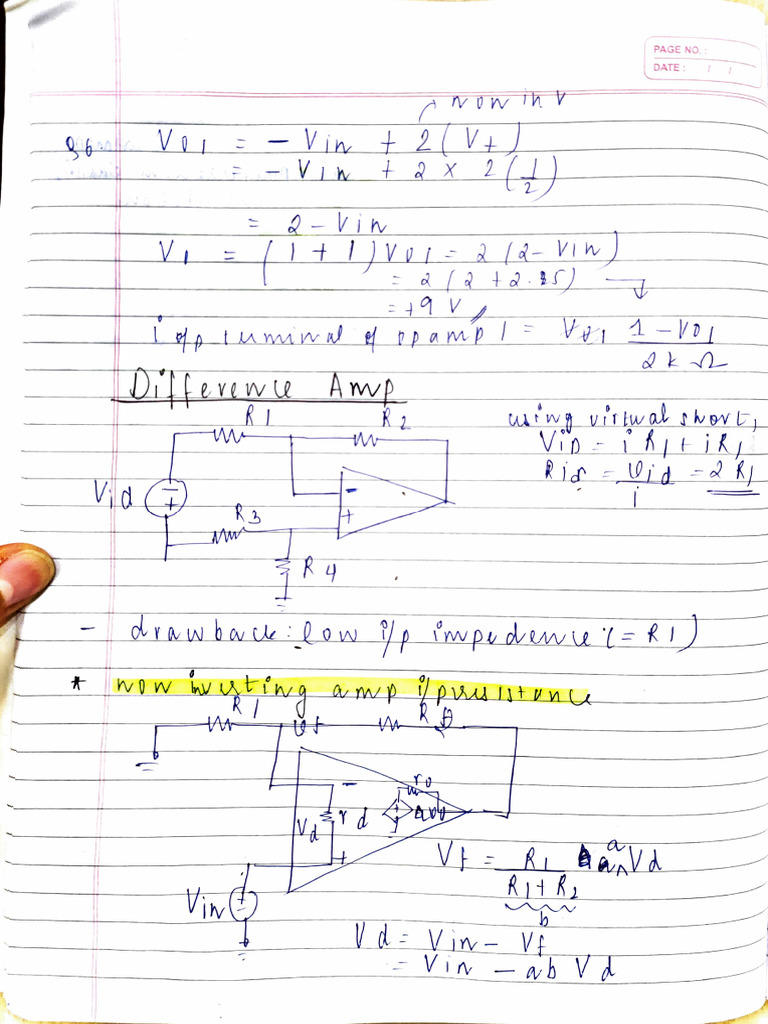 PAGE NO. :
DATE : / /
non inv
96 V01 = - Vin + 2 ( V+ )
= - Vin + 2 x 2 ( 1/2 )
= 2 - Vin
V1 = ( 1 + 1 ) V01 = 2 ( 2 - Vin )
= 2 ( 2 + 2.25 )
= +9 V
i o/p terminal of opamp 1 = V01 1 - V01 / 2k Ω
Difference Amp
R1 R2
using virtual short,
Vid = i R1 + i R1
Rid = Vid / i = 2 R1
Vid
-
+
- +
R3
R4
- drawback : low i/p impedence ( = R1 )
* non inverting amp i/p resistance
R1 Vf
- ro
Vd rd
+
Vf = R1 / R1 + R2 a Vd
b
Vin
Vd = Vin - Vf
= Vin - ab Vd